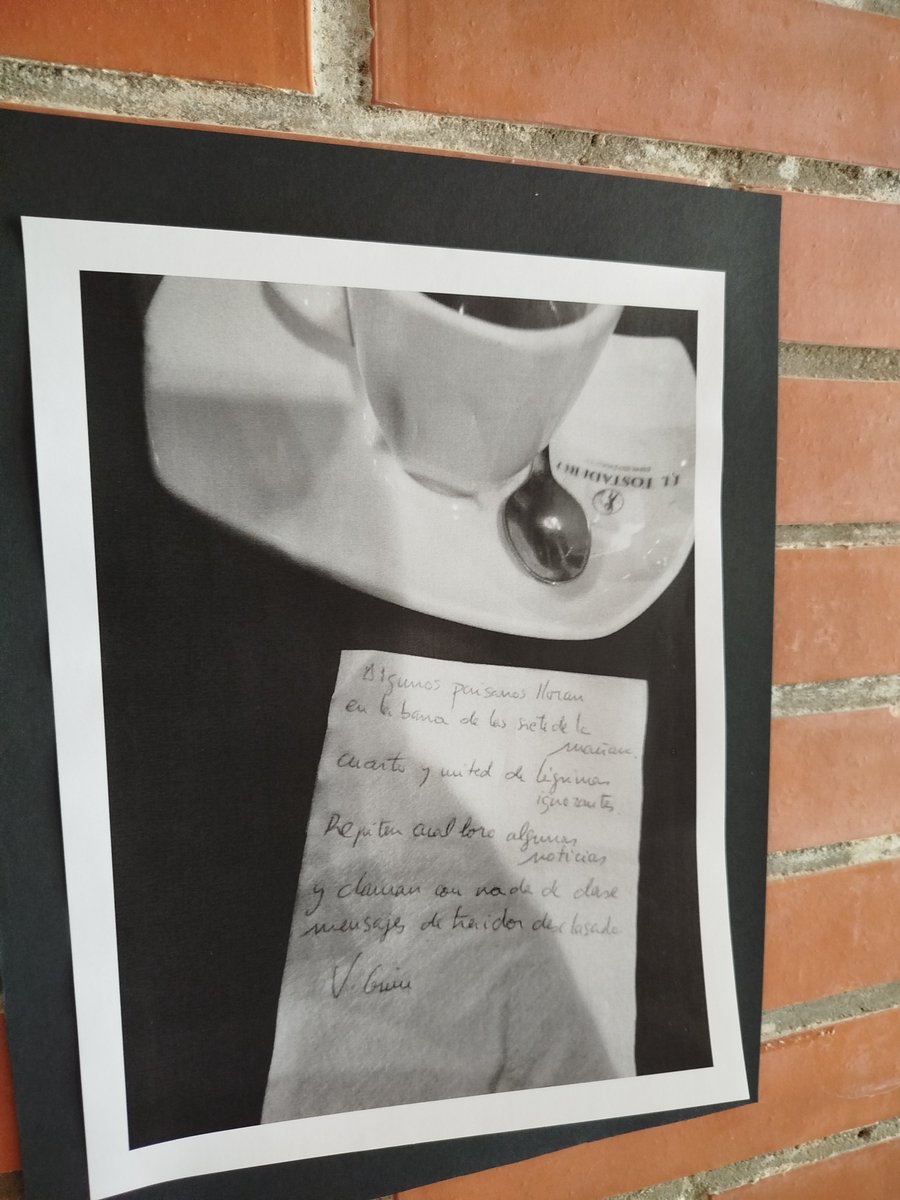 EL TOSTADERO
Algunos paisanos lloran
en la barra de las siete de la
mañana.
cuarto y mitad de lágrimas
ignorantes.
Repiten cual loro algunas
noticias
y claman con nada de clase
mensajes de traidor desclasado
V.